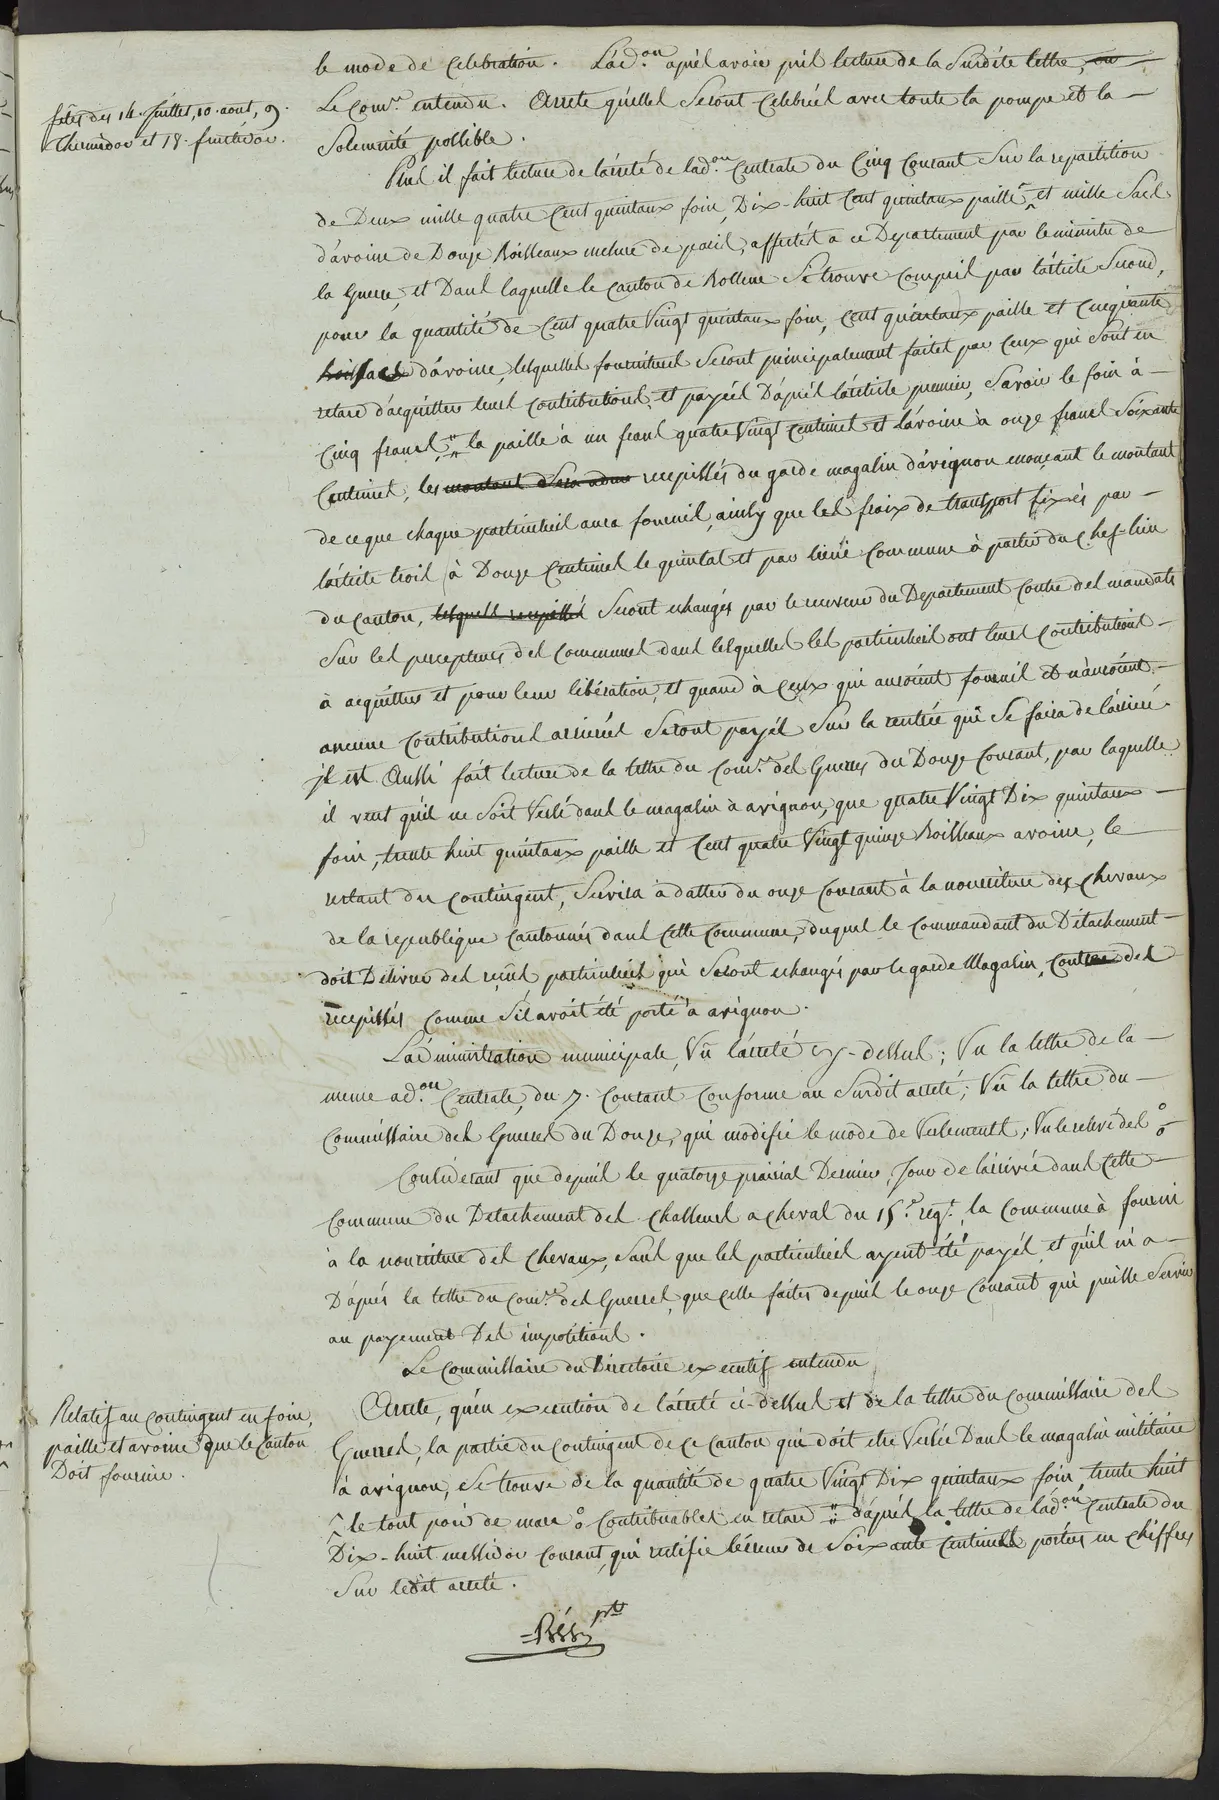 le mode de Celebration. L'ad.on aprés avoir pris lecture de la Susdite lettre, ou
fêtes des 14. Juillet, 10. aout, 9.
thermidor et 18. fructidor.
Le Com.re entendu. Arrete qu'elles Seront Celebrées avec toute la pompe et la
Solemnité possible.
Plus il fait lecture de l'arreté de l'ad.on Centrale du Cinq Courant Sur la repartition
de Deux mille quatre Cent quintaux foin, Dix-huit Cent quintaux paille, et mille Sacs
d'avoine de Douze Boisseaux mesure de paris, affectés a ce Departement par le ministre de
la Guerre, et Dans laquelle le Canton de Bollene Se trouve Compris par l'article Second,
pour la quantité de Cent quatre Vingt quintaux foin, Cent quintaux paille et Cinquante
sacs d'avoine, lesquelles fournitures Seront principalement faites par Ceux qui Sont en
retard d'acquitter leurs Contributions, et payées D'aprés l'article premier, Savoir le foin à
Cinq francs, la paille à un franc quatre Vingt Centimes et l'avoine à onze francs Soixante
Centimes, les montant Sera admis recepissés du garde magasin d'avignon enonçant le montant
de ce que chaque particulier aura fourni, ainsy que les fraix de transport fixés par
l'article trois à Douze Centimes le quintal et par lieüe Commune à partir du Chef-lieu
du Canton, lesquels recepissés Seront echangés par le receveur du Departement Contre des mandats
Sur les percepteurs des Communes dans lesquelles les particuliers ont leurs Contributions
à acquitter et pour leur libération, et quand à Ceux qui auroint fourni et n'auroint
aucune Contributions arrierés Seront payés Sur la rentrée qui Se faira de l'arrieré.
il est Aussi fait lecture de la lettre du Com.re des Guerres du Douze Courant, par laquelle
il veut qu'il ne Soit Versé dans le magasin d'avignon, que quatre Vingt Dix quintaux
foin, trente huit quintaux paille et Cent quatre Vingt quinze Boisseaux avoine, le
restant du Contingent, Servira à datter du onze Courant à la nourriture des Chevaux
de la republique Cantonnés dans Cette Commune, duquel le Commandant du Détachement
doit Delivrer des reçus particuliers qui Seront echangés par le garde Magasin, Contre des
recepissés Comme S'il avoit été porté à avignon.
L'administration municipale, Vû l'arreté cy-dessus; Vu la lettre de la
meme ad.on Centrale, du 7. Courant Conforme au Susdit arreté; Vû la lettre du
Commissaire des Guerres du Douze, qui modifie le mode de Versements; Vu le relevé des
Considerant que depuis le quatorze prairial Dernier, Jour de l'arrivée dans Cette
Commune du Detachement des Chasseurs a Cheval du 15.e reg.t, la Commune à fourni
à la nourriture des Chevaux, Sans que les particuliers ayent été payés, et qu'il n'i a
D'aprés la lettre du Com.re des Guerres, que celle faites depuis le onze Courant qui puisse Servir
au payement Des impositions.
Le Commissaire du Directoire executif entendu
Relatif au Contingent en foin,
paille et avoine que le Canton
Doit fournir.
Arrete, qu'en execution de l'arreté ci-dessus et de la lettre du Commissaire des
Guerres, la partie du Contingent de Ce Canton qui doit etre Versée Dans le magasin militaire
à avignon, Se trouve de la quantité de quatre Vingt Dix quintaux foin, trente huit
le tout poid de marc o Contribuables en retard D'aprés la lettre de l'ad.on Centrale du
Dix-huit messidor Courant, qui rectifie l'erreur de Soixante Centimes portées en Chiffres
Sur ledit arreté.